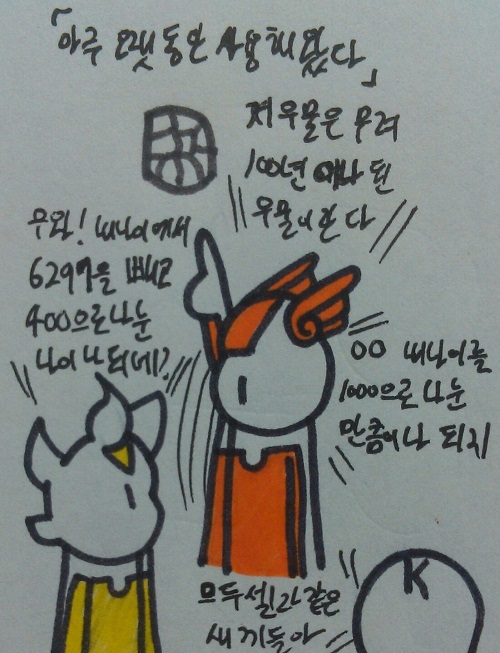 「아주 오랫동안 사용해왔다」
저 우물은 무려
100년 이나 된
우물이란다
우와! 내나이에서
6297을 빼고
400으로 나눈
나이나 되네?
00 내나이를
1000으로 나눈
만큼이나 되지
므두셀라같은
새끼들아
K